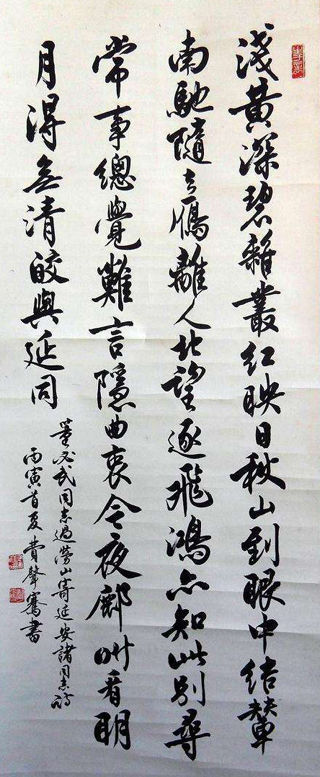 淺黃深碧雜叢紅映日秋山到眼中結輦
南馳隨去鴈離人北望逐飛鴻亦知此別尋
常事總覺難言隱曲衷今夜鄜州看明
月得無清皎與延同
董必武同志過勞山寄延安諸同志詩
丙寅首夏費聲騫書